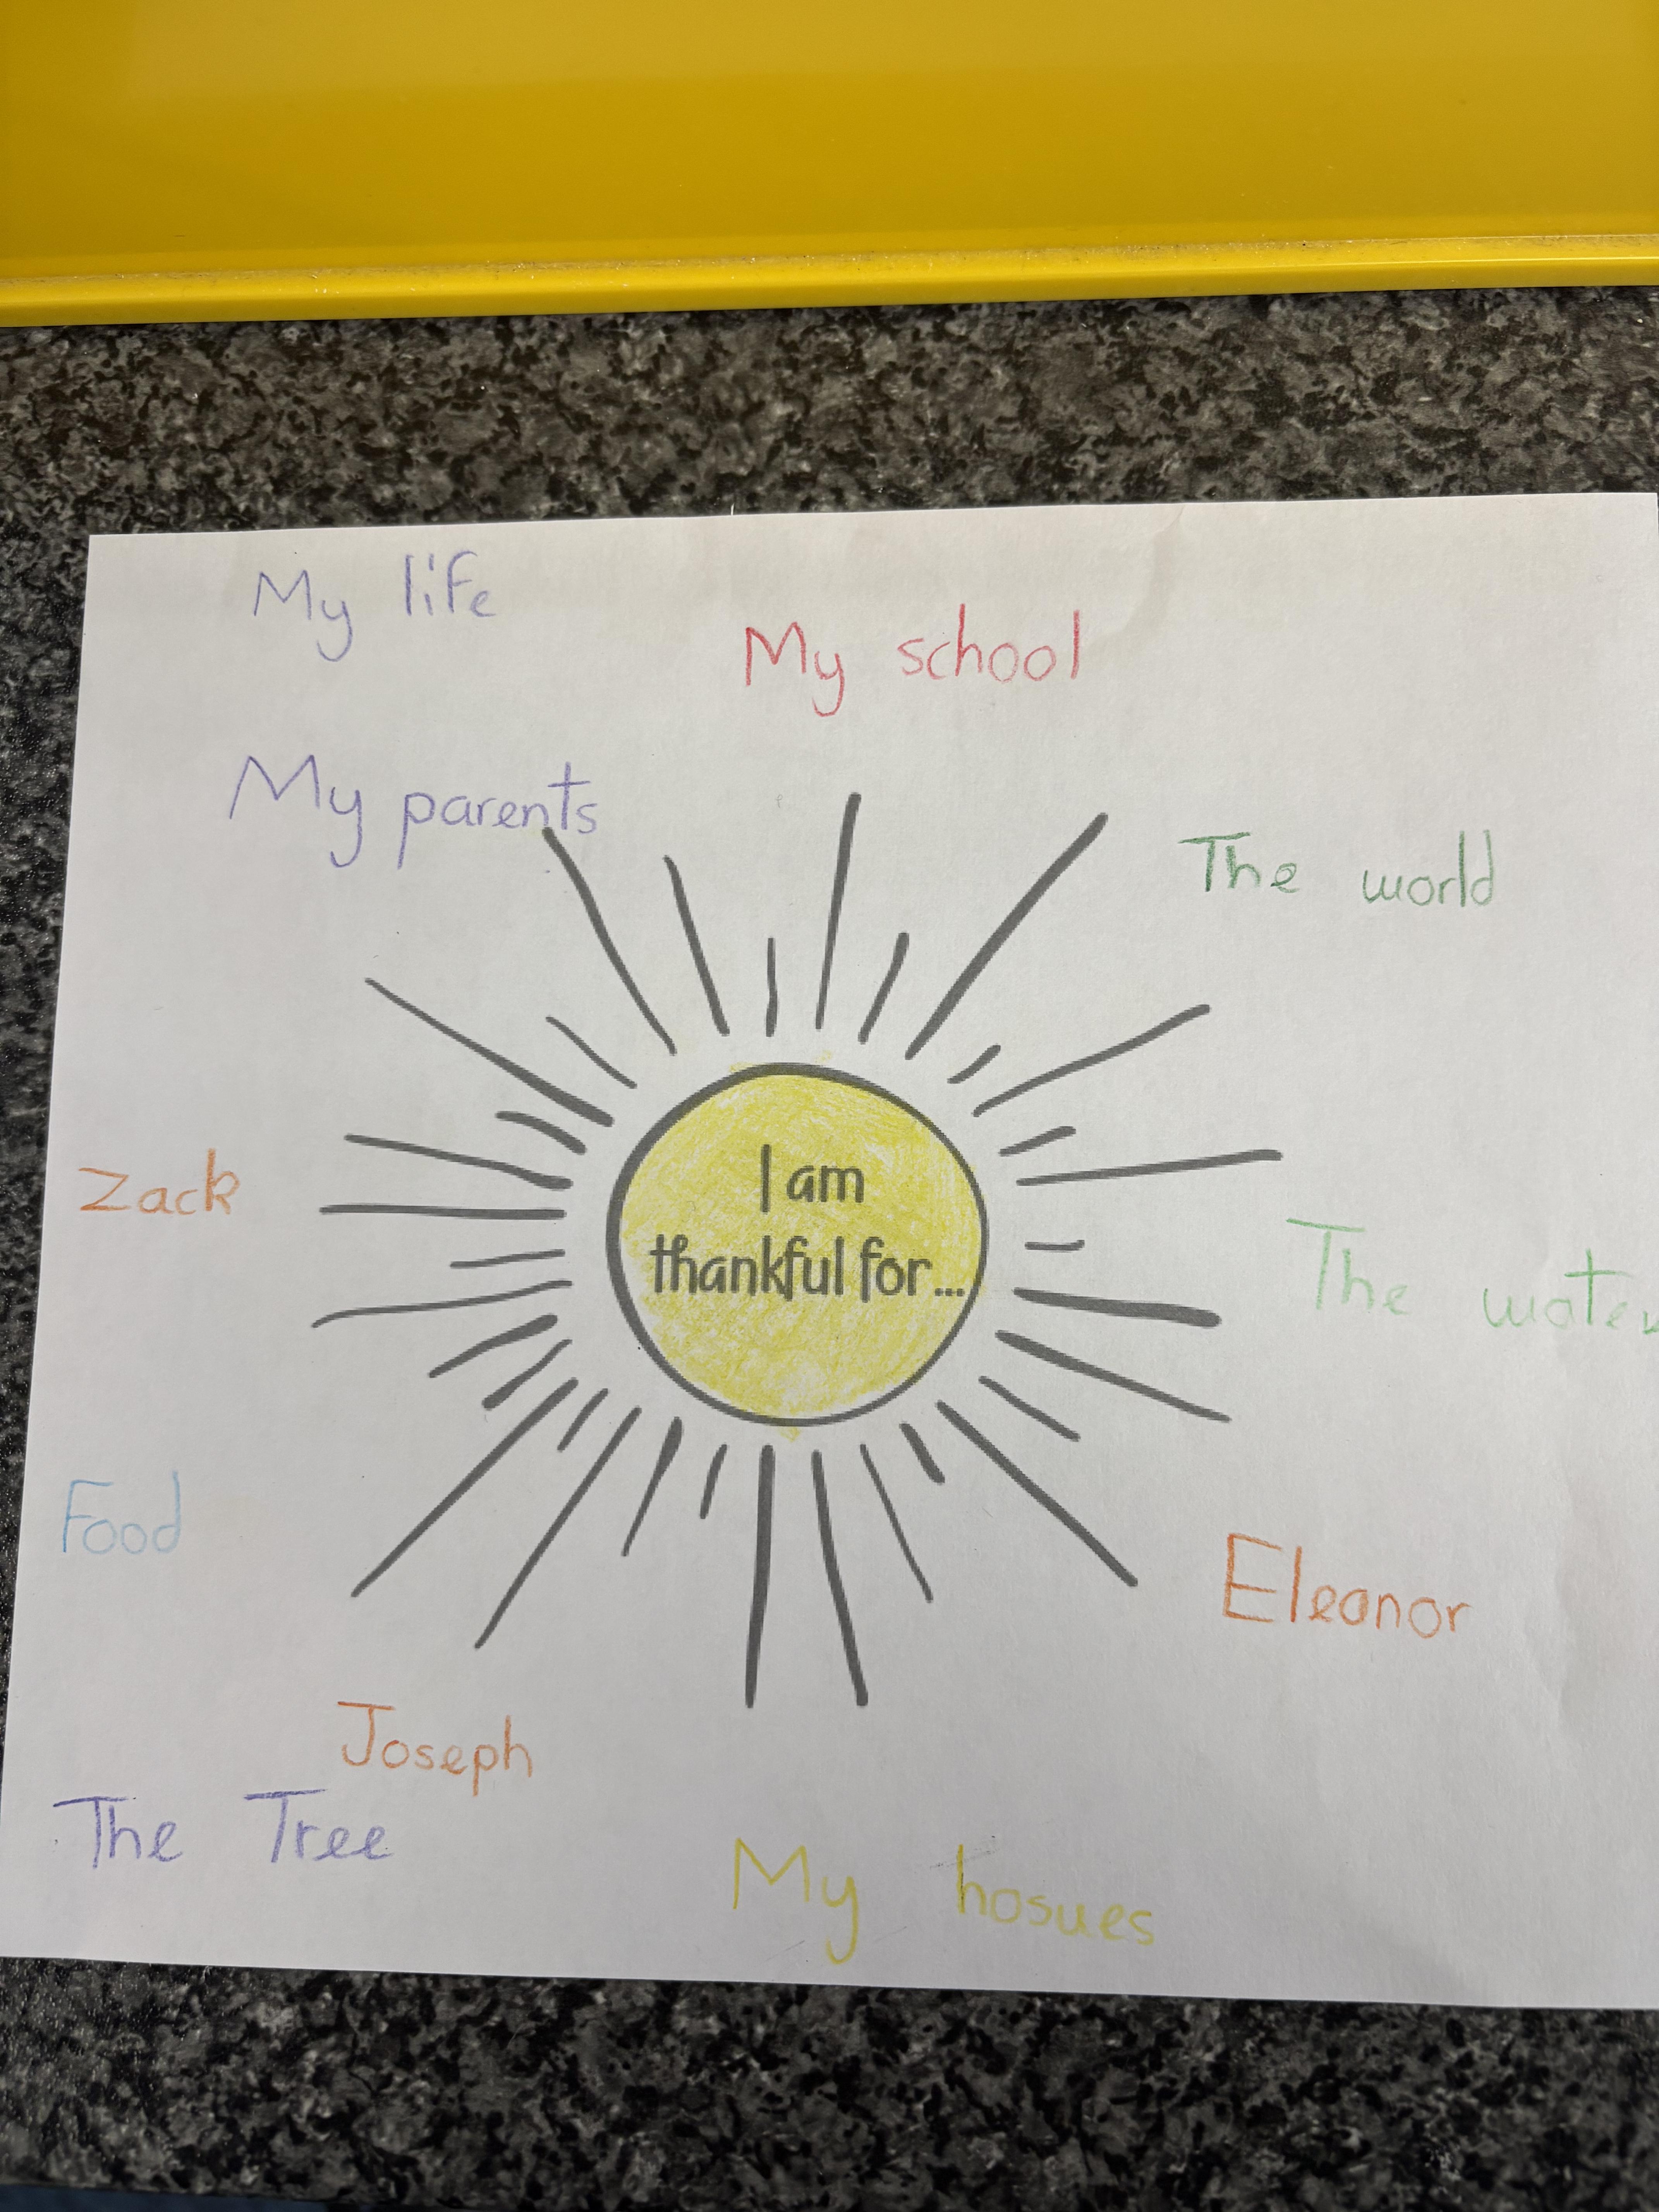 My life
My school
My parents
The world
Zack
I am
thankful for...
The water
Food
Eleanor
Joseph
The Tree
My hosues